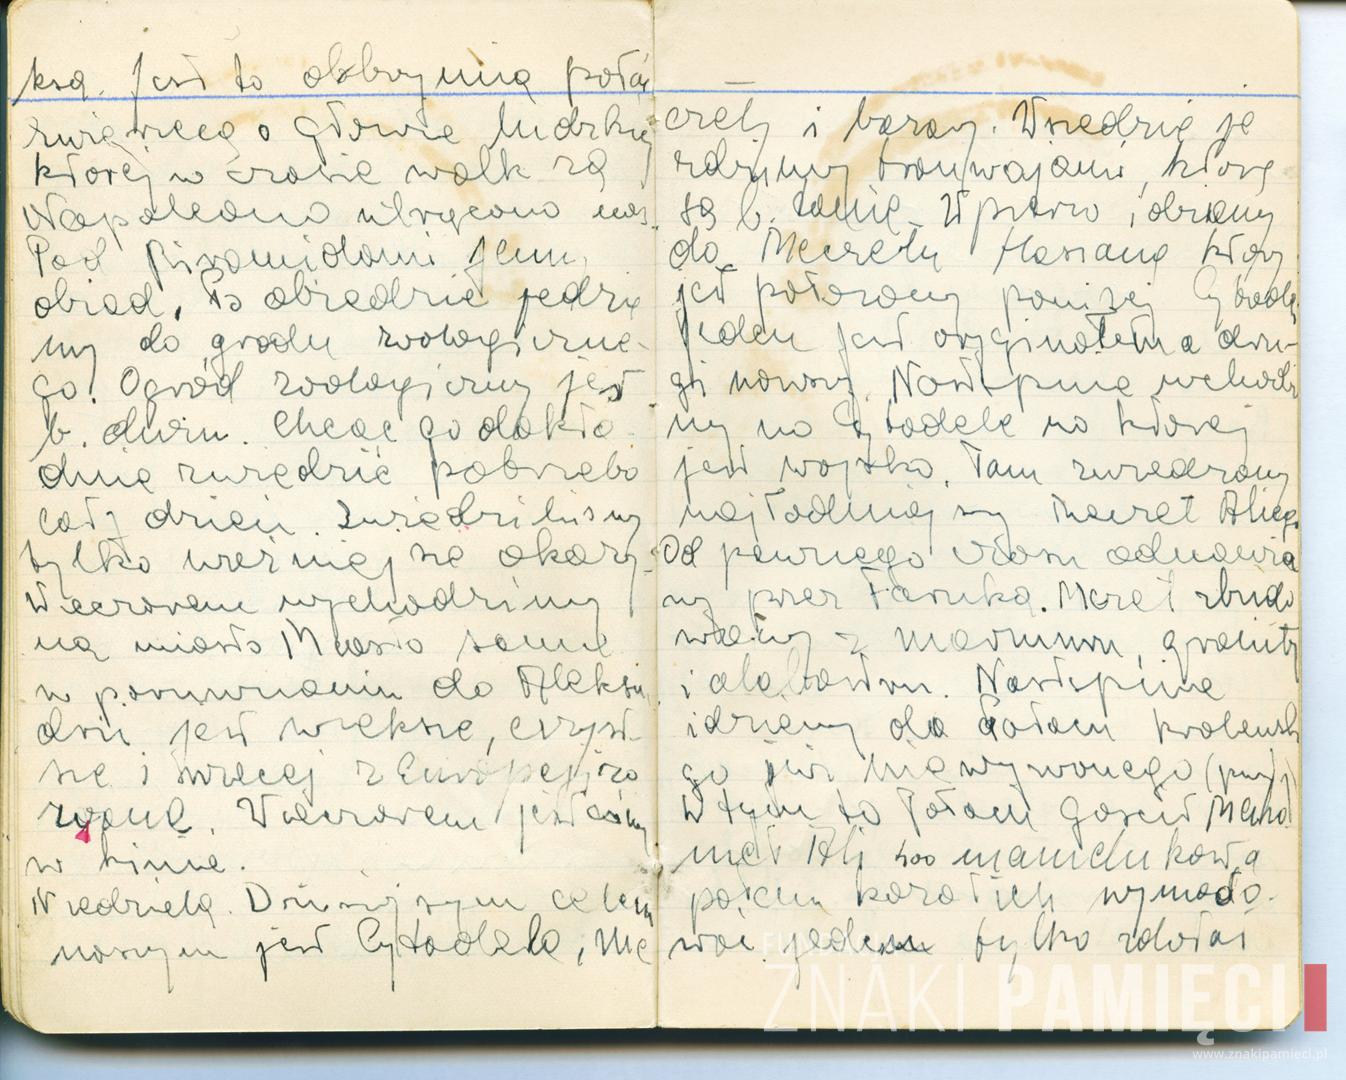 ksą. Jest to olbrzymia postać
zwierzęca o głowie ludzkiej
której w czasie walk za
Napoleona utrącono nos.
Pod Piramidami jemy
obiad. Po obiedzie jedzie
my do grodu zoologiczne-
go. Ogród zoologiczny jest
b. duży. Chcąc go dokła-
dnie zwiedzić potrzeba
cały dzień. Zwiedziliśmy
tylko ważniejsze okazy.
Wieczorem wychodzimy
na miasto Miasto same
w porównaniu do Aleksan
drii jest większe, czyst-
sze i więcej z Europejizo
wane. Wieczorem jesteśmy
w kinie.
Niedziela. Dzisiejszym celem
naszym jest Cytadela, Me
czety i bazary. Wszędzie je
ździmy tramwajami, które
są b. tanie. Wpierw idziemy
do Meczetu Hassana który
jest położony poniżej Cytadeli
jeden jest oryginałem a dru-
gi nowszy. Następnie wchodzi
my na Cytadelę na której
jest wojsko. Tam zwiedzamy
najładniejszy meczet Aliego
Od pewnego czasu odnawia
ny przez Faruka. Meczet zbudo
wany z marmuru, granitu
i alabastru. Następnie
idziemy do Pałacu królewsk
go już nieużywanego
W tym to Pałacu gościł Meha
met Ali 400 mameluków a
potem kazał ich wymordo-
wać jeden tylko zdołał
FUNDACJA
ZNAKI PAMIĘCI
www.znakipamieci.pl